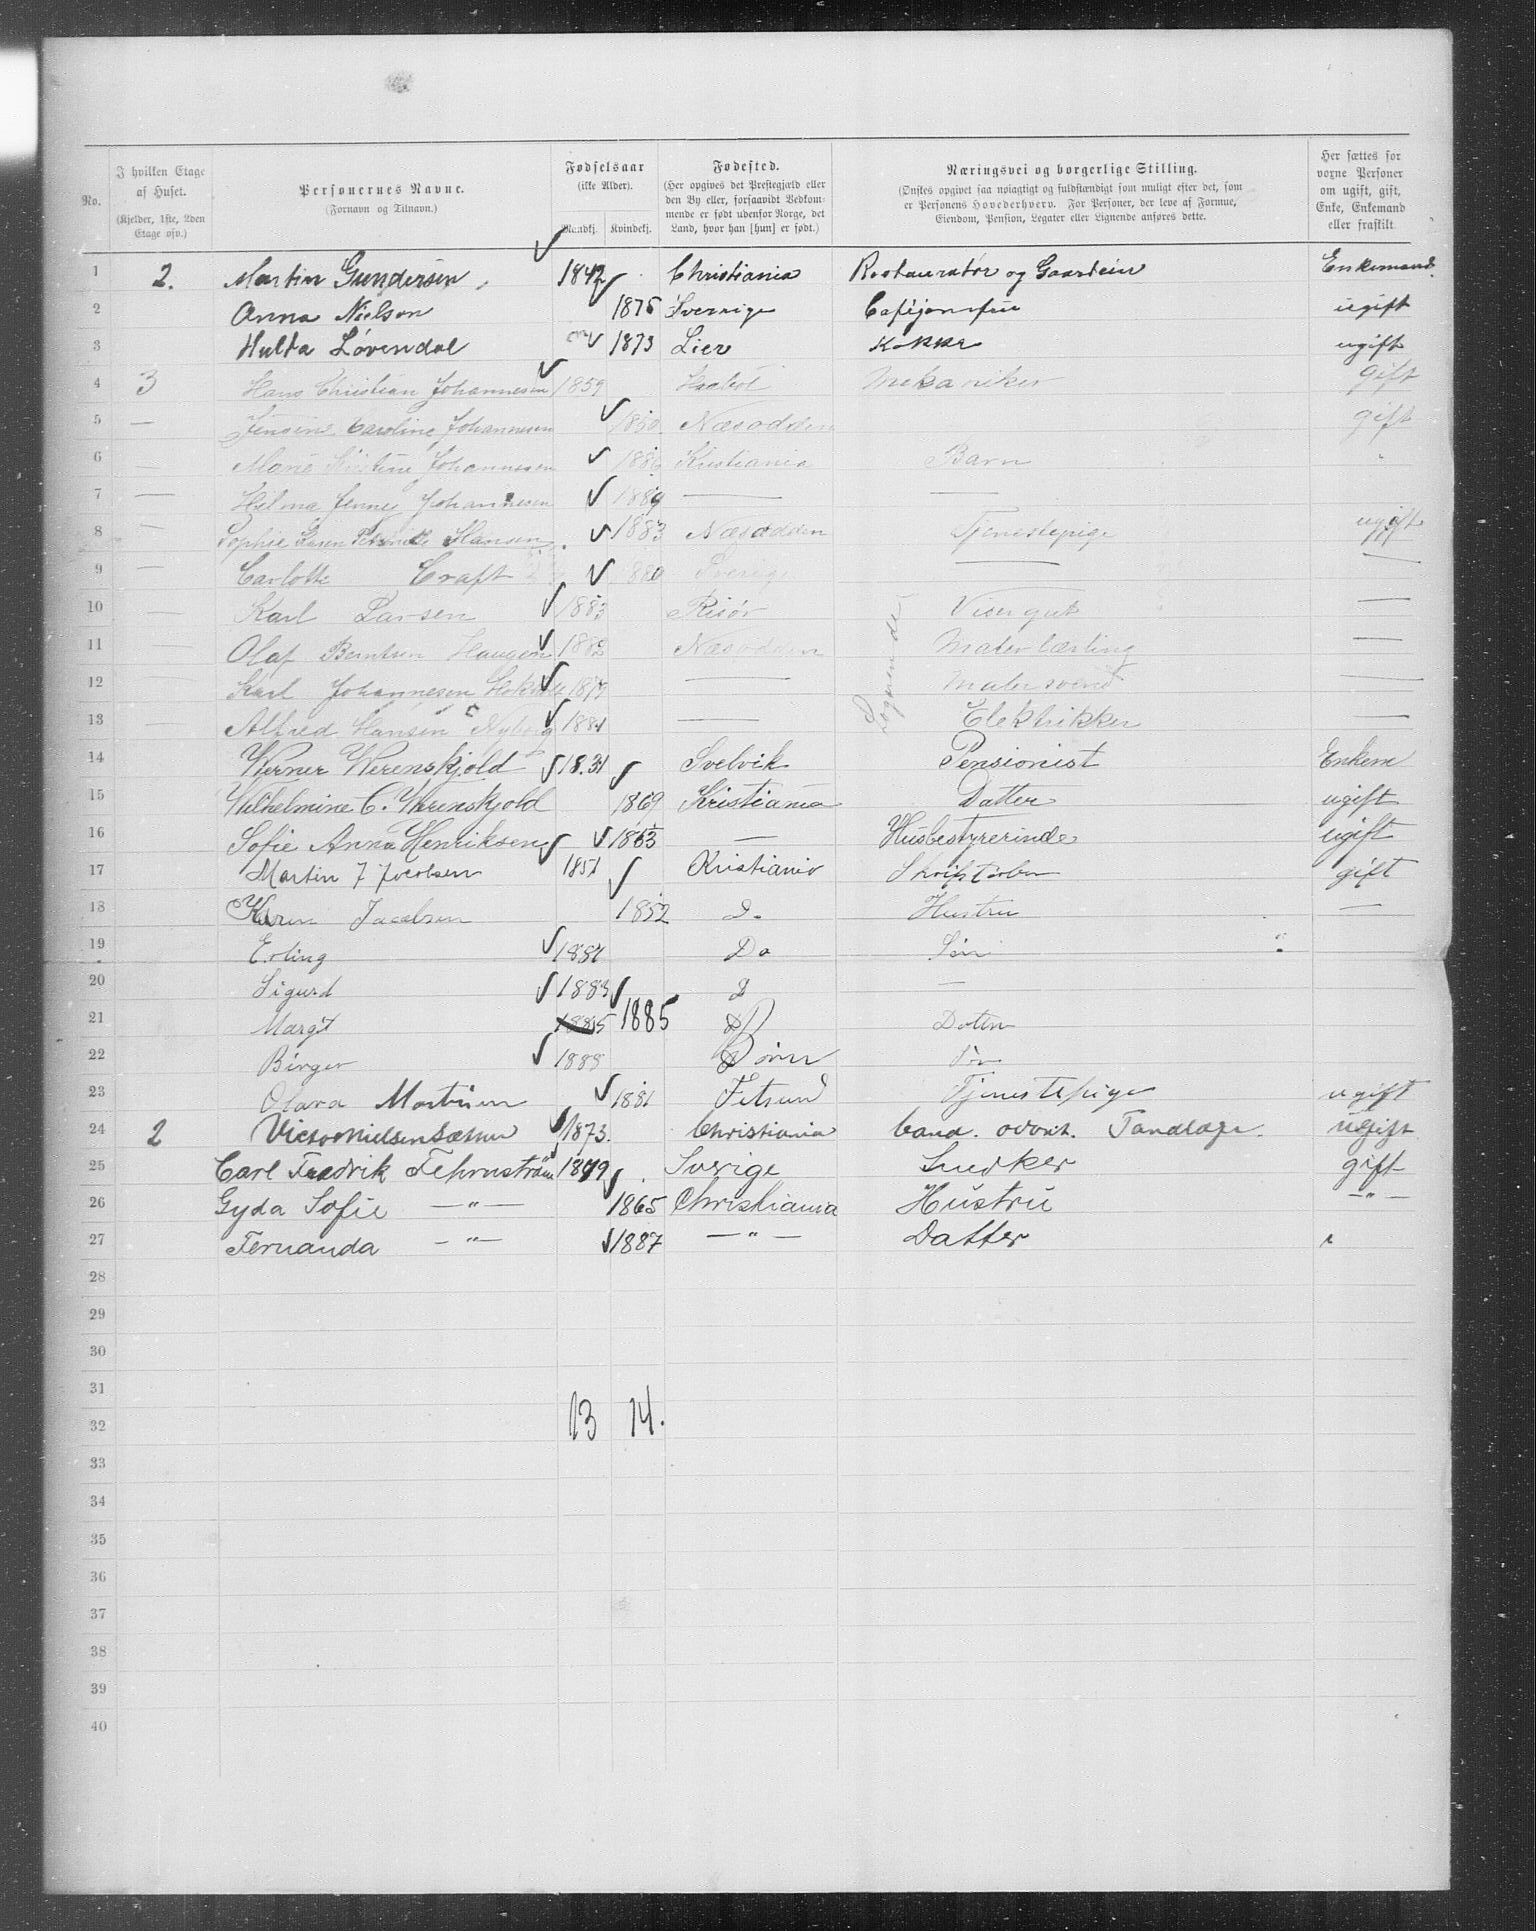 No.
I hvilken Etage af Huset.
(Kjelder, 1ste, 2den Etage osv.)
Personernes Navne.
(Fornavn og Tilnavn.)
Fødselsaar
(ikke Alder).
Mandkj. Kvindekj.
Fødested.
(Her opgives det Prestegjæld eller den By eller, forsaavidt Vedkommende er født udenfor Norge, det Land, hvor han [hun] er født.)
Næringsvei og borgerlige Stilling.
(Ønskes opgivet saa nøiagtigt og fuldstændigt som muligt efter det, som er Personens Hovederhverv. For Personer, der leve af Formue, Eiendom, Pension, Legater eller Lignende anføres dette.
Her sættes for voxne Personer om ugift, gift, Enke, Enkemand eller fraskilt.
1 2. Martin Gundersen 1842 Christiania Restauratør og Gaardeier Enkemand.
2 Anna Nielson 1876 Sverrige Cafejomfru ugift
3 Hulda Lövendal 1873 Lier Kokke ugift
4 3 Hans Christian Johannesen 1859 Mekaniker gift
5 — Caroline Johannesen 1850 Næsodden gift
6 — Marie Kristine Johannesen 1886 Kristiania Barn
7 — Helma Jenny Johannesen 1889 — —
8 — Sophie Hansen 1883 Næsodden Tjenestepige ugift
9 — Carlotte Craft 1880 Sverige — —
10 — Karl Larsen 1883 Risør Visergut —
11 — Olaf Berntsen Haugen 1882 Næsodden Malerlærling —
12 — Karl Johannesen 1877 — Malersvend —
13 — Alfred Hansen Nyborg 1881 — Elektrikker —
Logerende
14 Werner Werenskjold 18.31 Svelvik Pensionist Enkem
15 Wilhelmine C. Werenskjold 1869 Kristiania Datter ugift
16 Sofie Anna Henriksen 1863 — Husbestyrerinde ugift
17 Martin J Jacobsen 1851 Kristiania gift
18 Karen Jacobsen 1852 D. Hustru —
19 Erling 1881 Do Søn
20 Sigurd 1883 D —
21 Margit 1885 1885 D Daten
22 Birger 1888 Søn
23 Olava Martinsen 1881 Fetsund Tjenestepige ugift
24 2 Victor Nielsen Sæther 1873. Christiania Cand. odont. Tandlæge. ugift
25 Carl Fredrik Fehrnström 1849 Sverige Snedker gift
26 Gyda Sofie —"— 1865 Christiania Hustru —"—
27 Fernanda —"— 1887 —"— Datter
28
29
30
31
32 13 14.
33
34
35
36
37
38
39
40